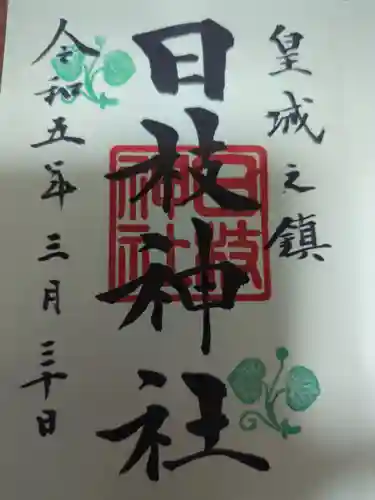 皇城之鎮
日枝神社
日枝神社
令和五年三月三十日